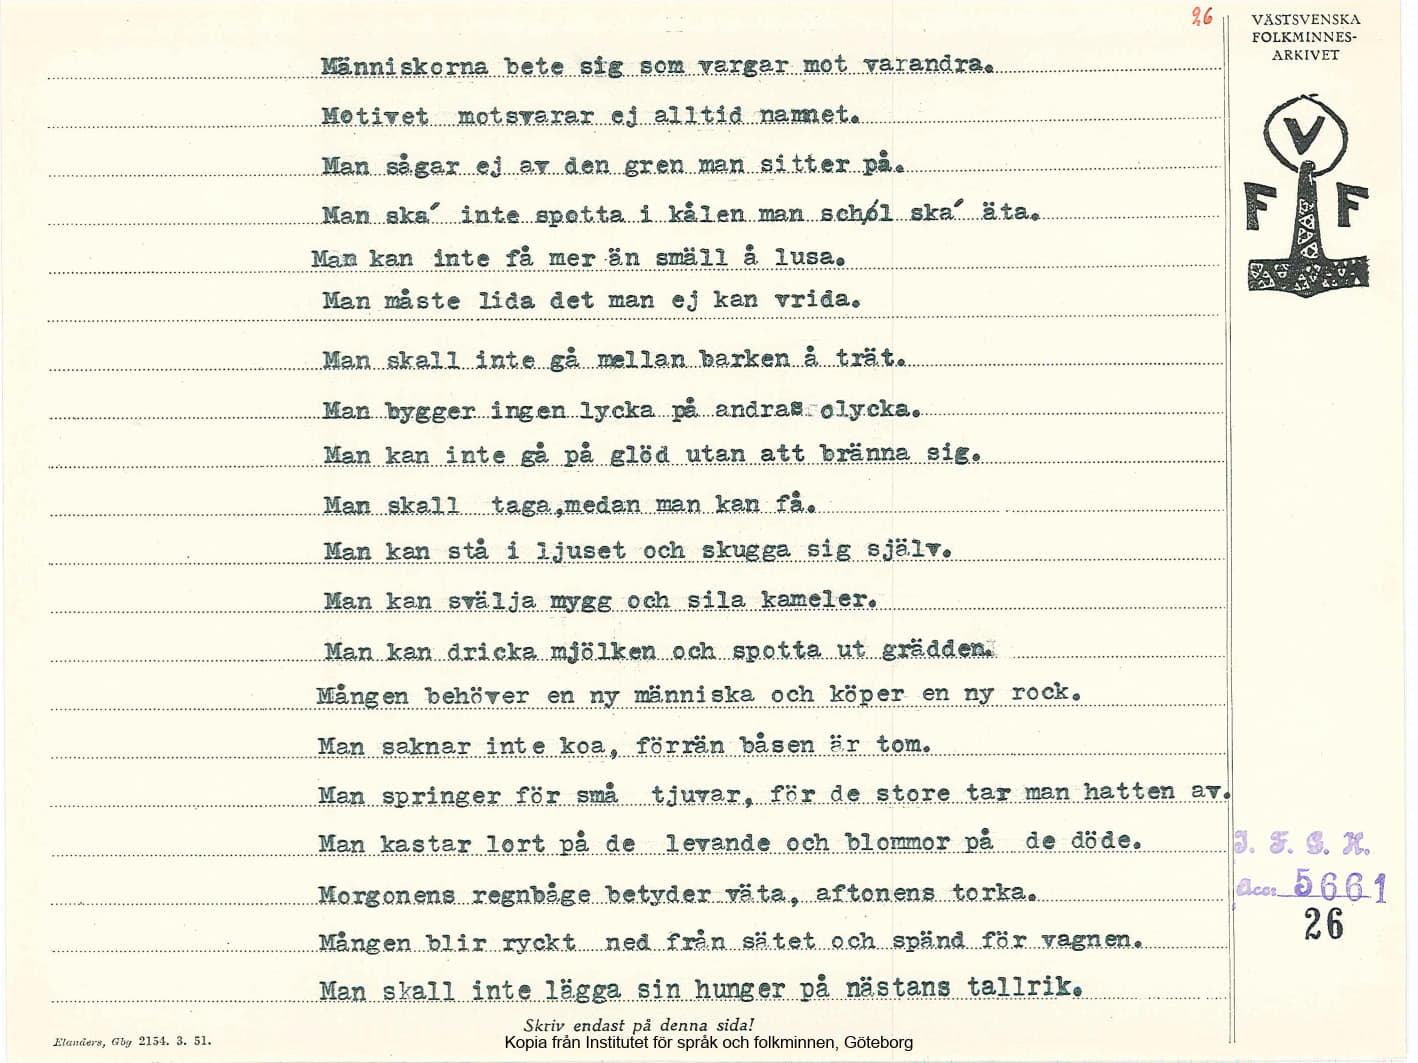 26
VÄSTSVENSKA
FOLKMINNES-
ARKIVET
V
F F
Människorna bete sig som vargar mot varandra.
Motivet motsvarar ej alltid namnet.
Man sågar ej av den gren man sitter på.
Man ska´ inte spotta i kålen man schøl ska´ äta.
Man kan inte få mer än smäll å lusa.
Man måste lida det man ej kan vrida.
Man skall inte gå mellan barken å trät.
Man bygger ingen lycka på andras olycka.
Man kan inte gå på glöd utan att bränna sig.
Man skall taga,medan man kan få.
Man kan stå i ljuset och skugga sig själv.
Man kan svälja mygg och sila kameler.
Man kan dricka mjölken och spotta ut grädden.
Mången behöver en ny människa och köper en ny rock.
Man saknar inte koa, förrän båsen är tom.
Man springer för små tjuvar, för de store tar man hatten av.
Man kastar lort på de levande och blommor på de döde.
Morgonens regnbåge betyder väta, aftonens torka.
Mången blir ryckt ned från sätet och spänd för vagnen.
Man skall inte lägga sin hunger på nästans tallrik.
I. F. G. H.
Acc: 5661
26
Skriv endast på denna sida!
Elanders, Gbg 2154. 3. 51.
Kopia från Institutet för språk och folkminnen, Göteborg